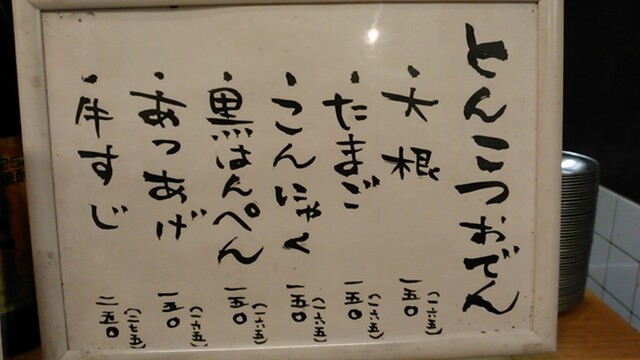 とんこつおでん
・大根 一五〇 (一六五)
・たまご 一五〇 (一六五)
・こんにゃく 一五〇 (一六五)
・黒はんぺん 一五〇 (一六五)
・あつあげ 一五〇 (一六五)
・牛すじ 二五〇 (二七五)